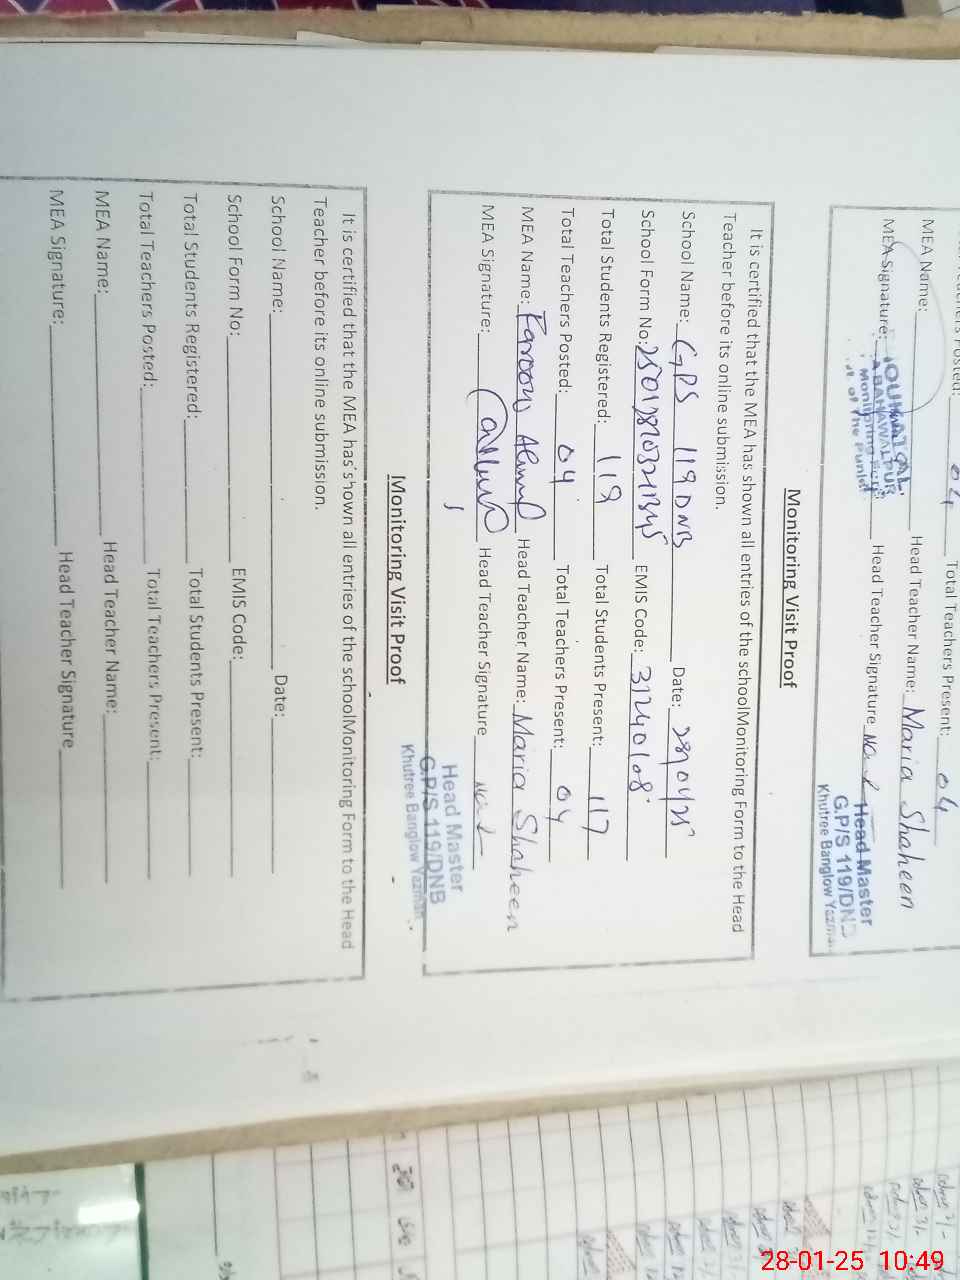 Total Teachers Present: 04
MEA Name: Head Teacher Name: Maria Shaheen
MEA Signature: Head Teacher Signature
BAHAWALPUR
of The Punjab
Head Master
G.P/S 119/DNB
Khutree Banglow Yazman
Monitoring Visit Proof
It is certified that the MEA has shown all entries of the schoolMonitoring Form to the Head
Teacher before its online submission.
School Name: GPS 119 DNB Date: 28/01/25
School Form No: EMIS Code: 31240108
Total Students Registered: 119 Total Students Present: 117
Total Teachers Posted: 04 Total Teachers Present: 04
MEA Name: Farooq Ahmad Head Teacher Name: Maria Shaheen
MEA Signature: Head Teacher Signature
Head Master
G.P/S 119/DNB
Khutree Banglow Yazman
Monitoring Visit Proof
It is certified that the MEA has shown all entries of the schoolMonitoring Form to the Head
Teacher before its online submission.
School Name: Date:
School Form No: EMIS Code:
Total Students Registered: Total Students Present:
Total Teachers Posted: Total Teachers Present:
MEA Name: Head Teacher Name:
MEA Signature: Head Teacher Signature
28-01-25 10:49